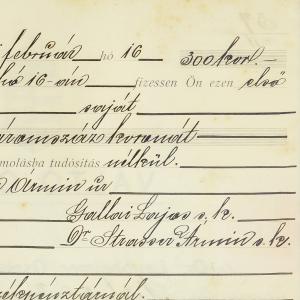 február hó 16 300 kor. –
hó 16-án fizessen Ön ezen első
saját
háromszáz koronát
számolásba tudósítás nélkül.
Ármin úr
Gallai Lajos s. k.
Dr Strasser Ármin s. k.